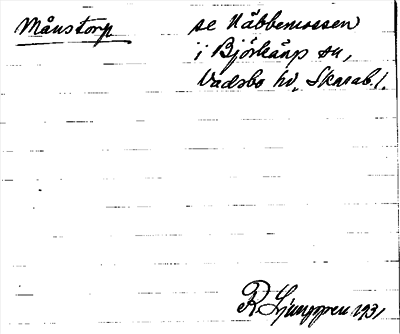 Månstorp
se Näbbemossen
i Björkäng sn,
Vadsbo hd, Skarab. l.
R. Ljunggren 1931